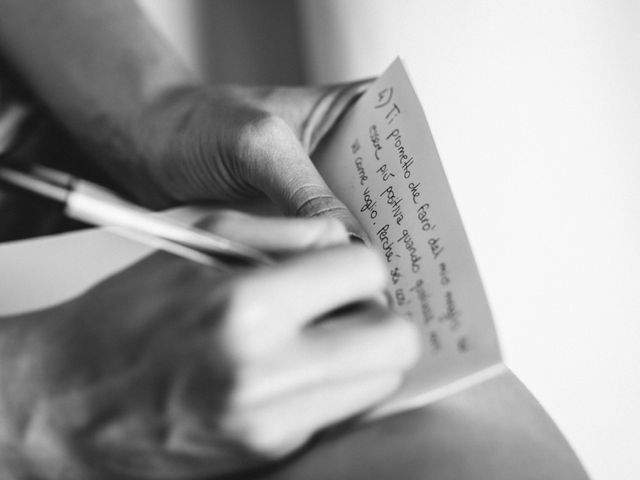 4) Ti prometto che farò del mio meglio per
essere più positiva quando qualcosa non
va come voglio. Perché sei così